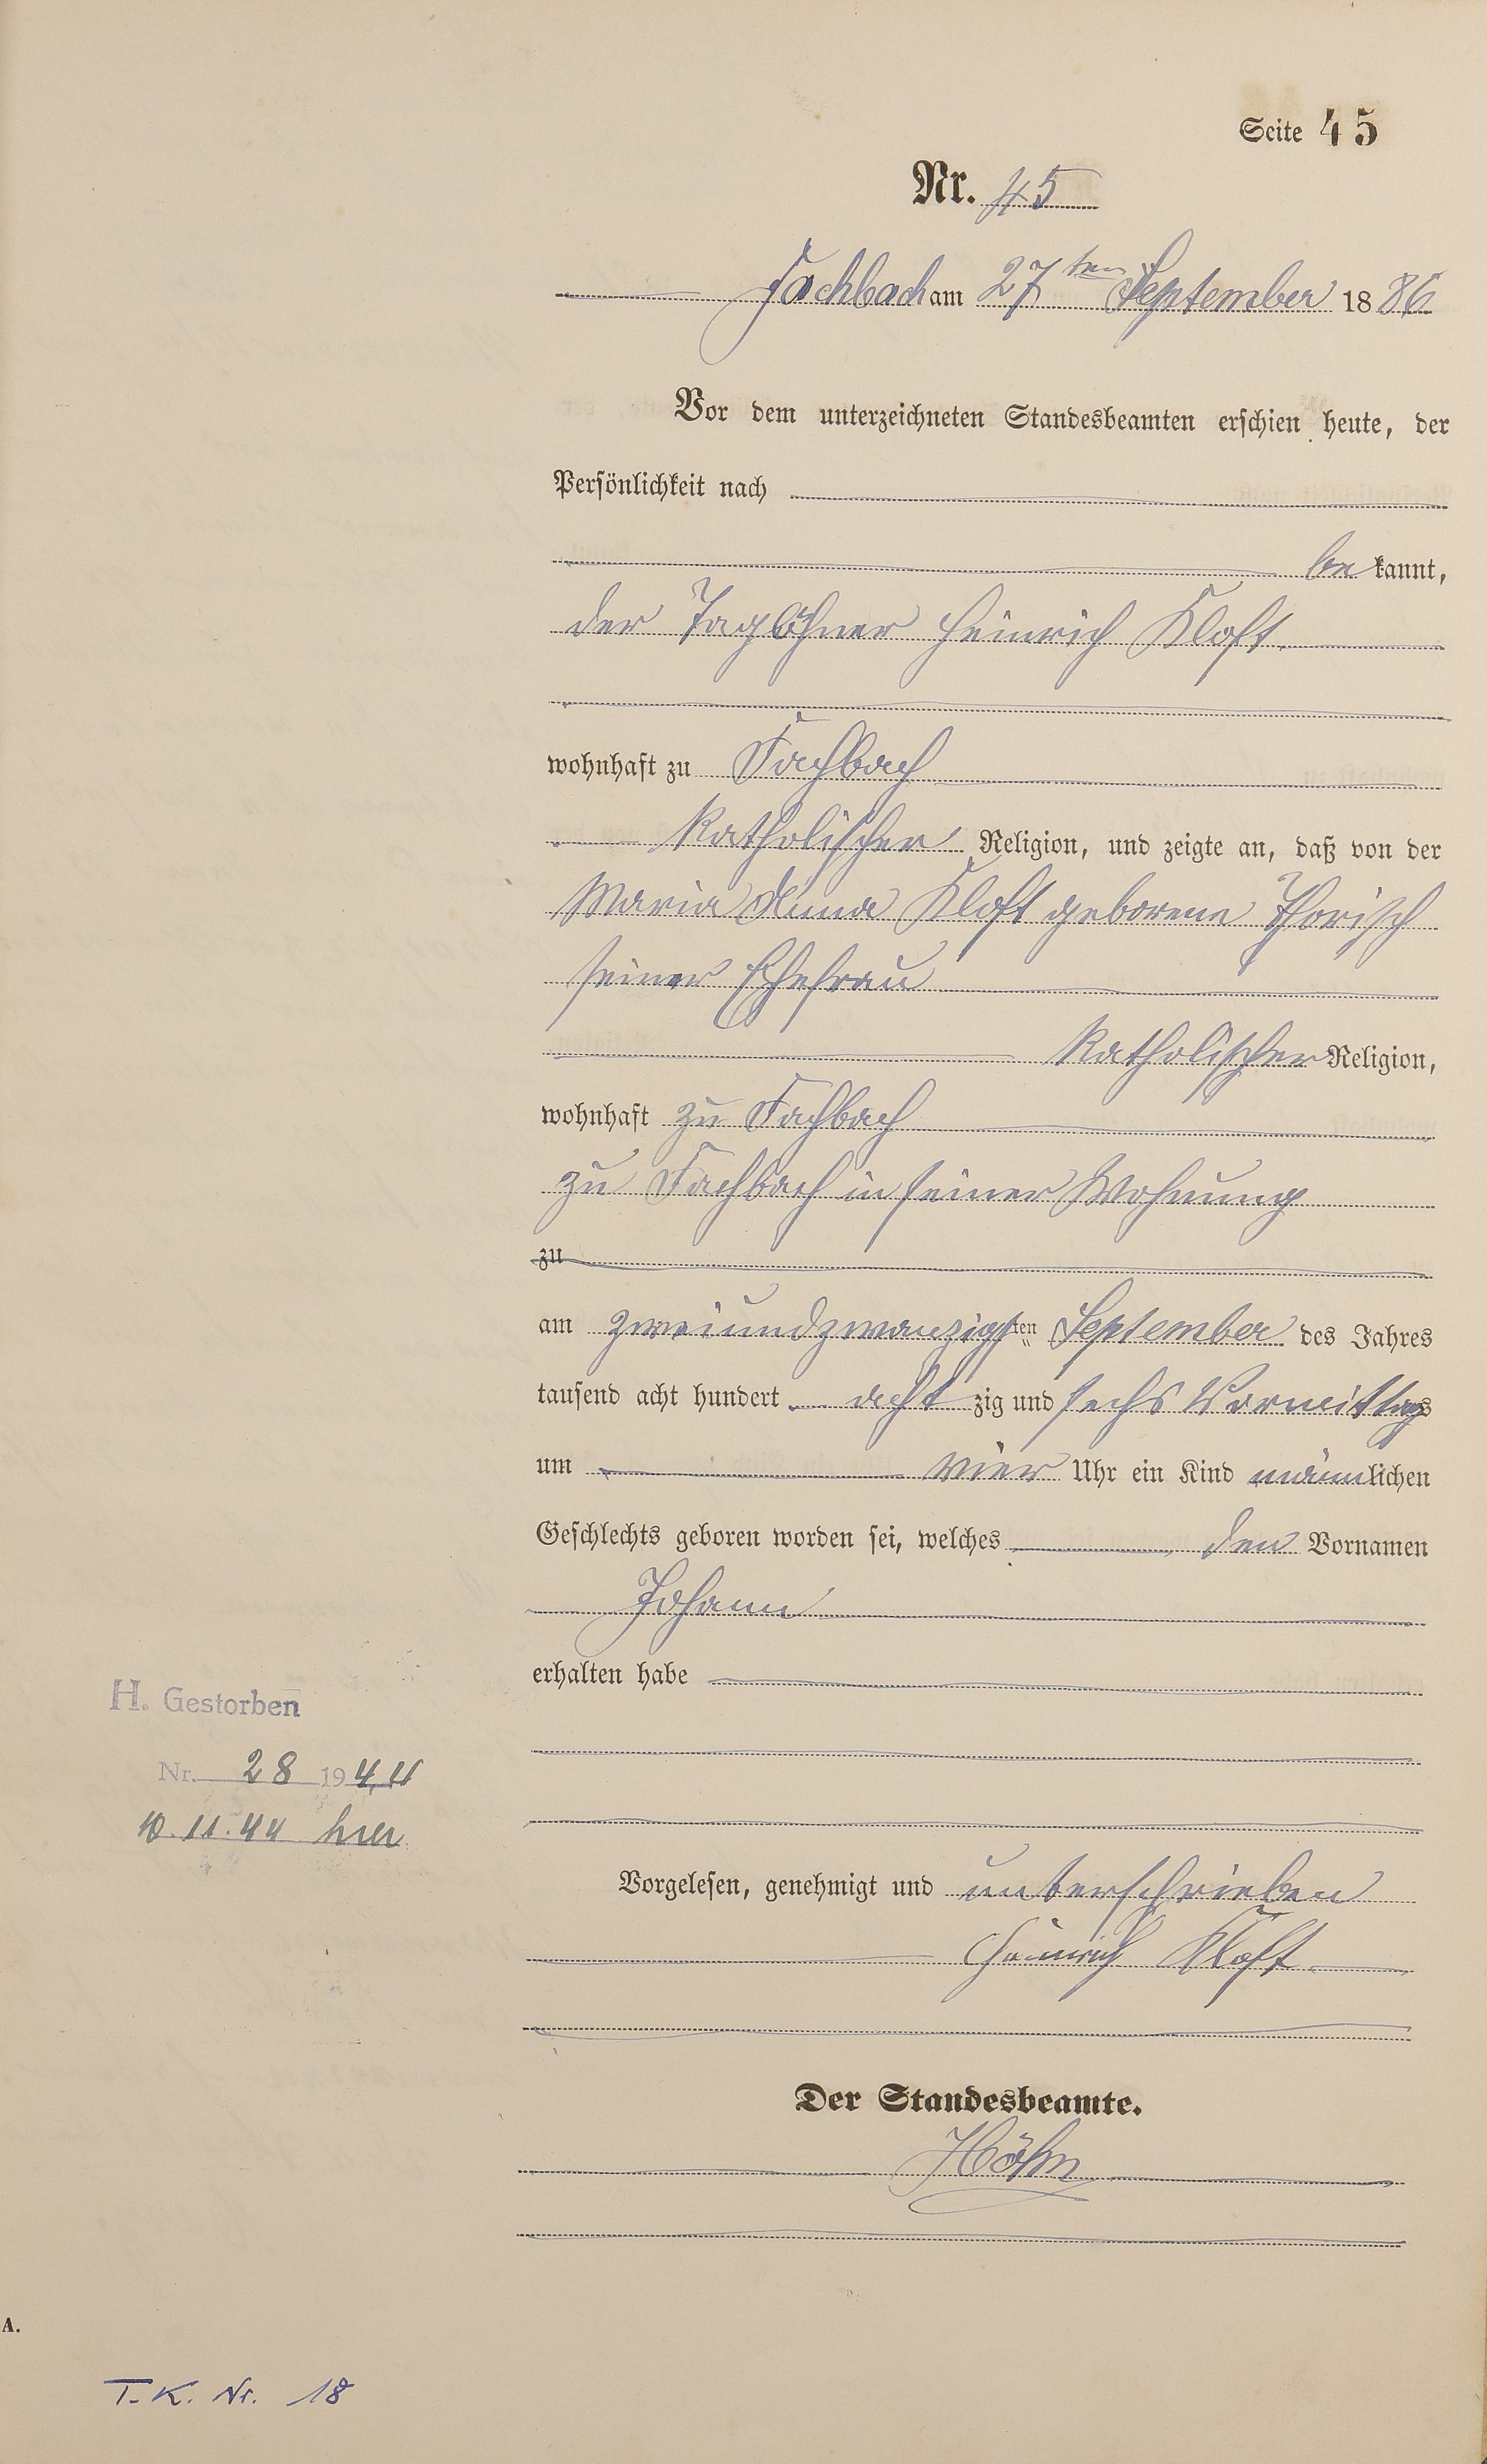 Seite 45
Nr. 45
Fachbach am 27ten September 1886
Vor dem unterzeichneten Standesbeamten erschien heute, der
Persönlichkeit nach
be kannt,
der Taglöhner Heinrich Kloft
wohnhaft zu Fachbach
katholischer Religion, und zeigte an, daß von der
Maria Anna Kloft geborene Thorisch
seiner Ehefrau
katholischer Religion,
wohnhaft zu Fachbach
zu Fachbach in seiner Wohnung
zu
am zweiundzwanzigsten September des Jahres
tausend acht hundert acht zig und sechs Vormittags
um vier Uhr ein Kind männlichen
Geschlechts geboren worden sei, welches den Vornamen
Johann
erhalten habe
H. Gestorben
Nr. 28 1944
10.11.44 hier
Vorgelesen, genehmigt und unterschrieben
Heinrich Kloft
Der Standesbeamte.
Höhn
A.
T. K. Nr. 18